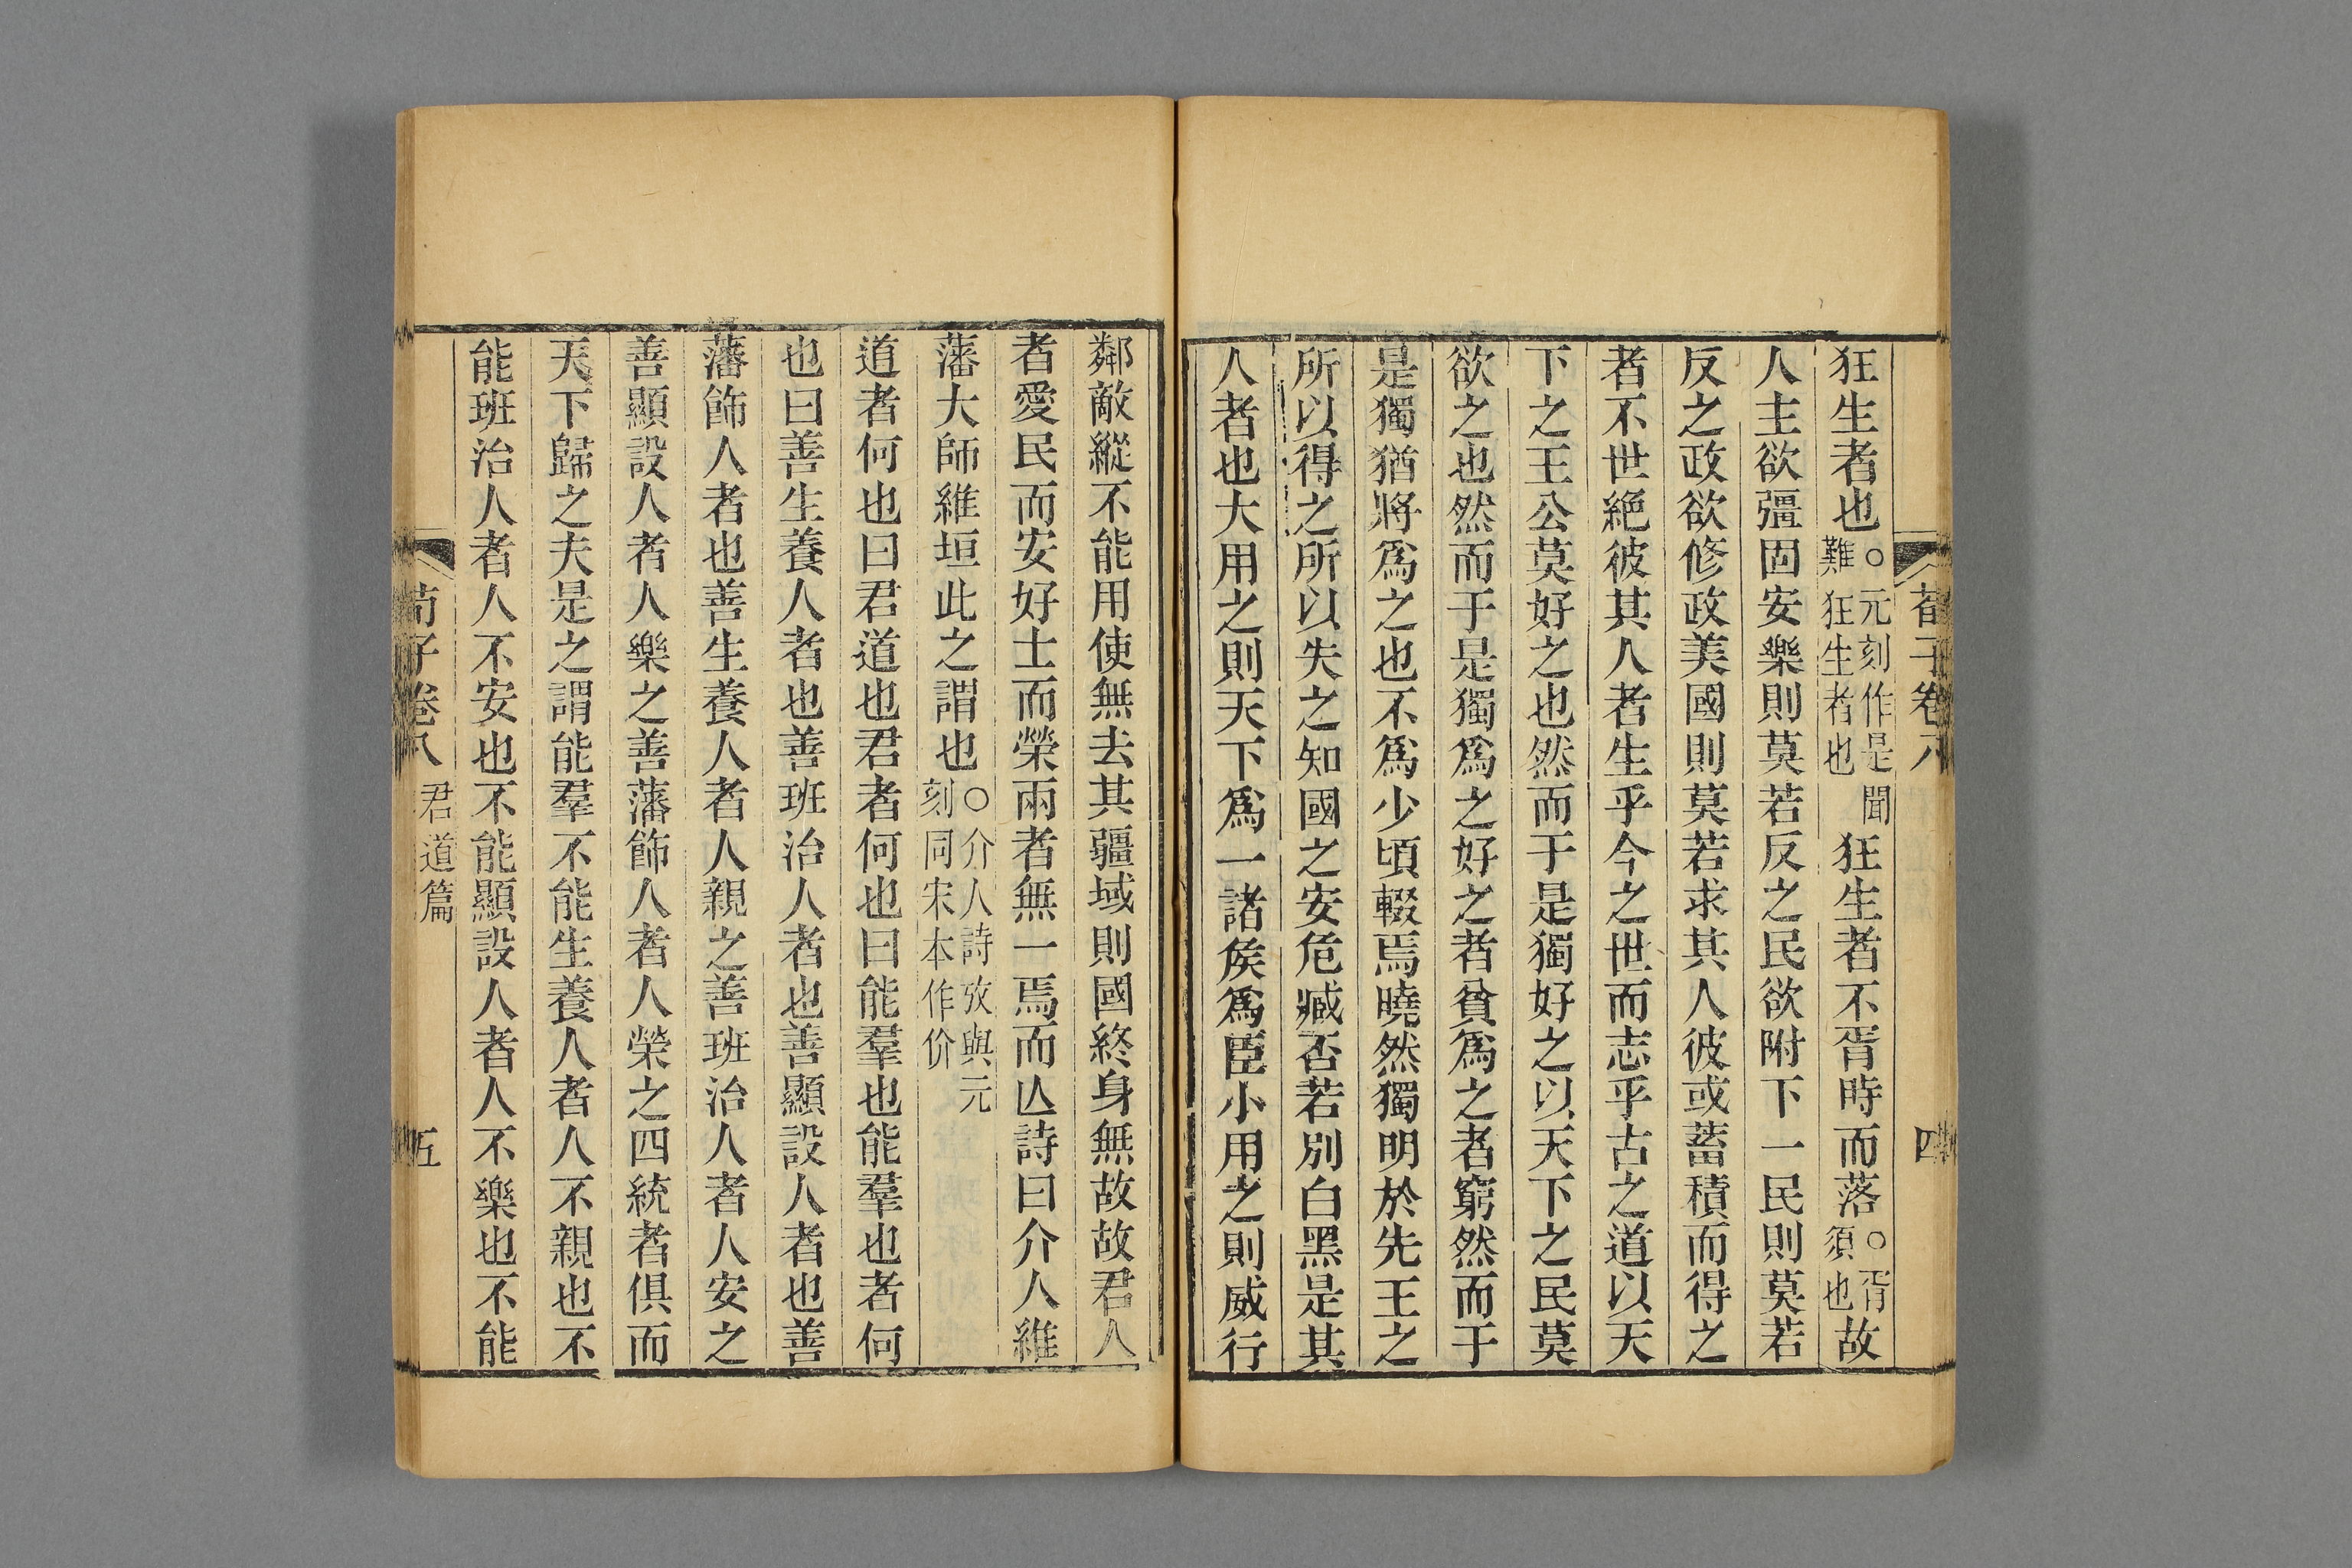 荀子卷八
四
狂生者也○元刻作是聞難狂生者也狂生者不胥時而落○胥須也故
人主欲彊固安樂則莫若反之民欲附下一民則莫若
反之政欲修政美國則莫若求其人彼或蓄積而得之
者不世絕彼其人者生乎今之世而志乎古之道以天
下之王公莫好之也然而于是獨好之以天下之民莫
欲之也然而于是獨爲之好之者貧爲之者窮然而于
是獨猶將爲之也不爲少頃輟焉曉然獨明於先王之
所以得之所以失之知國之安危臧否若別白黑是其
人者也大用之則天下爲一諸侯爲臣小用之則威行
鄰敵縱不能用使無去其疆域則國終身無故故君人
者愛民而安好士而榮兩者無一焉而亾詩曰介人維
藩大師維垣此之謂也○介人詩攷與元刻同宋本作价
道者何也曰君道也君者何也曰能羣也能羣也者何
也曰善生養人者也善班治人者也善顯設人者也善
藩飾人者也善生養人者人親之善班治人者人安之
善顯設人者人樂之善藩飾人者人榮之四統者俱而
天下歸之夫是之謂能羣不能生養人者人不親也不
能班治人者人不安也不能顯設人者人不樂也不能
荀子卷八 君道篇
五